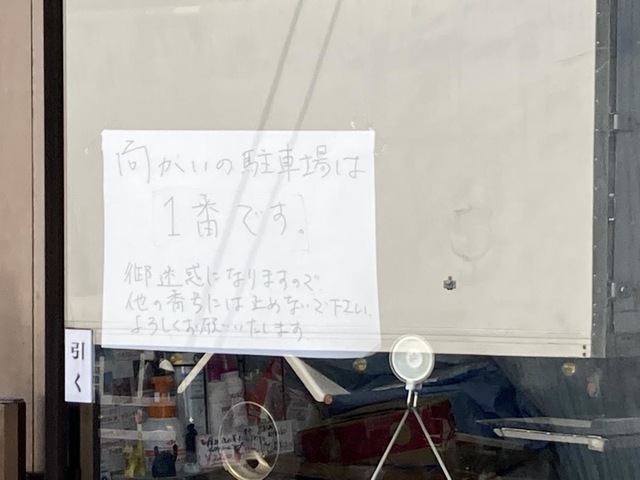 向かいの駐車場は
1番です。
御迷惑になりますので、
他の番号には止めないで下さい。
よろしくお願いいたします
引く